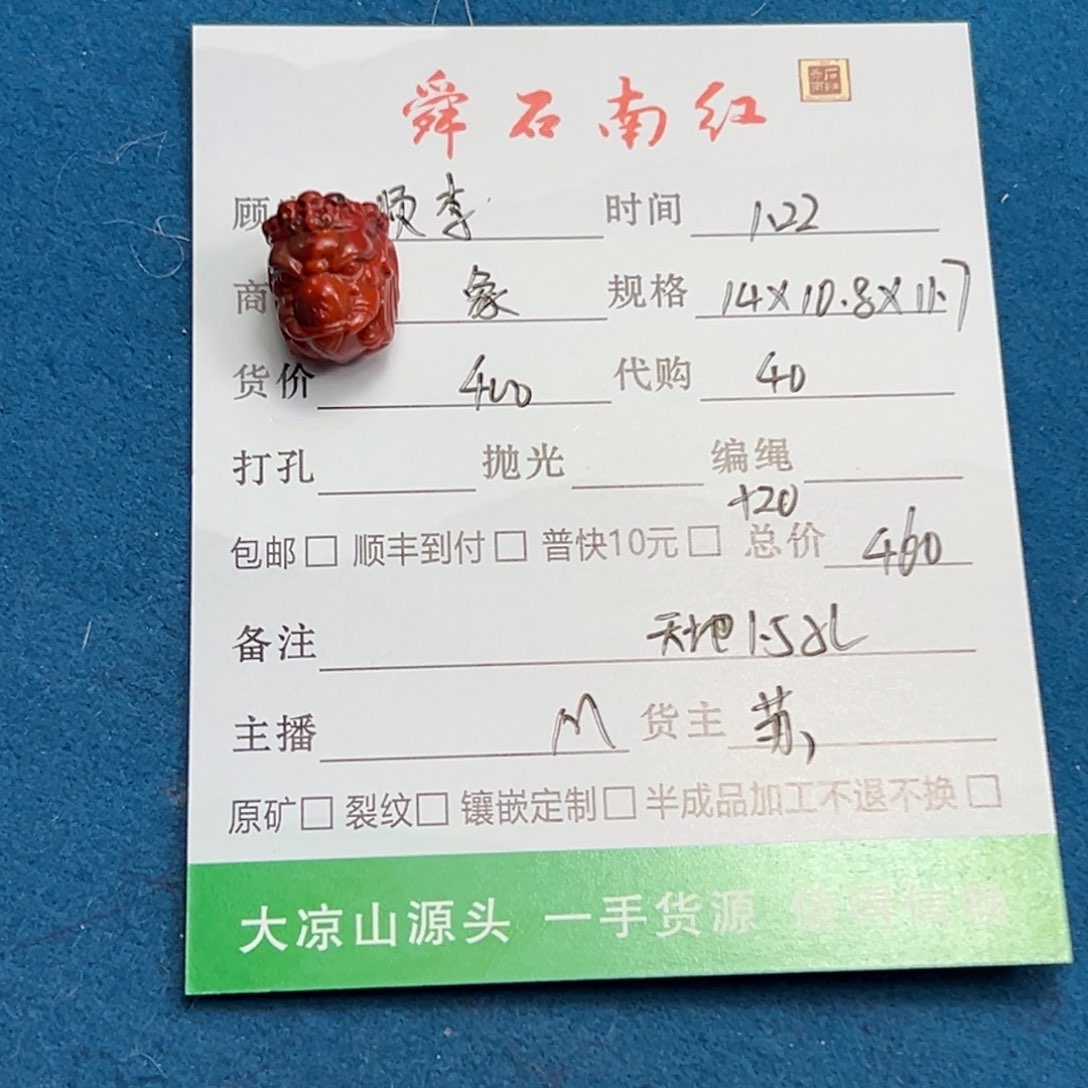 舜石南红
顾 顺李 时间 1.22
商 象 规格 14×10.8×11.7
货价 400 代购 40
打孔 抛光 编绳
+20
包邮□ 顺丰到付□ 普快10元□ 总价 460
备注 天地1.5孔
主播 M 货主 苏
原矿□ 裂纹□ 镶嵌定制□ 半成品加工不退不换□
大凉山源头 一手货源 值得信赖